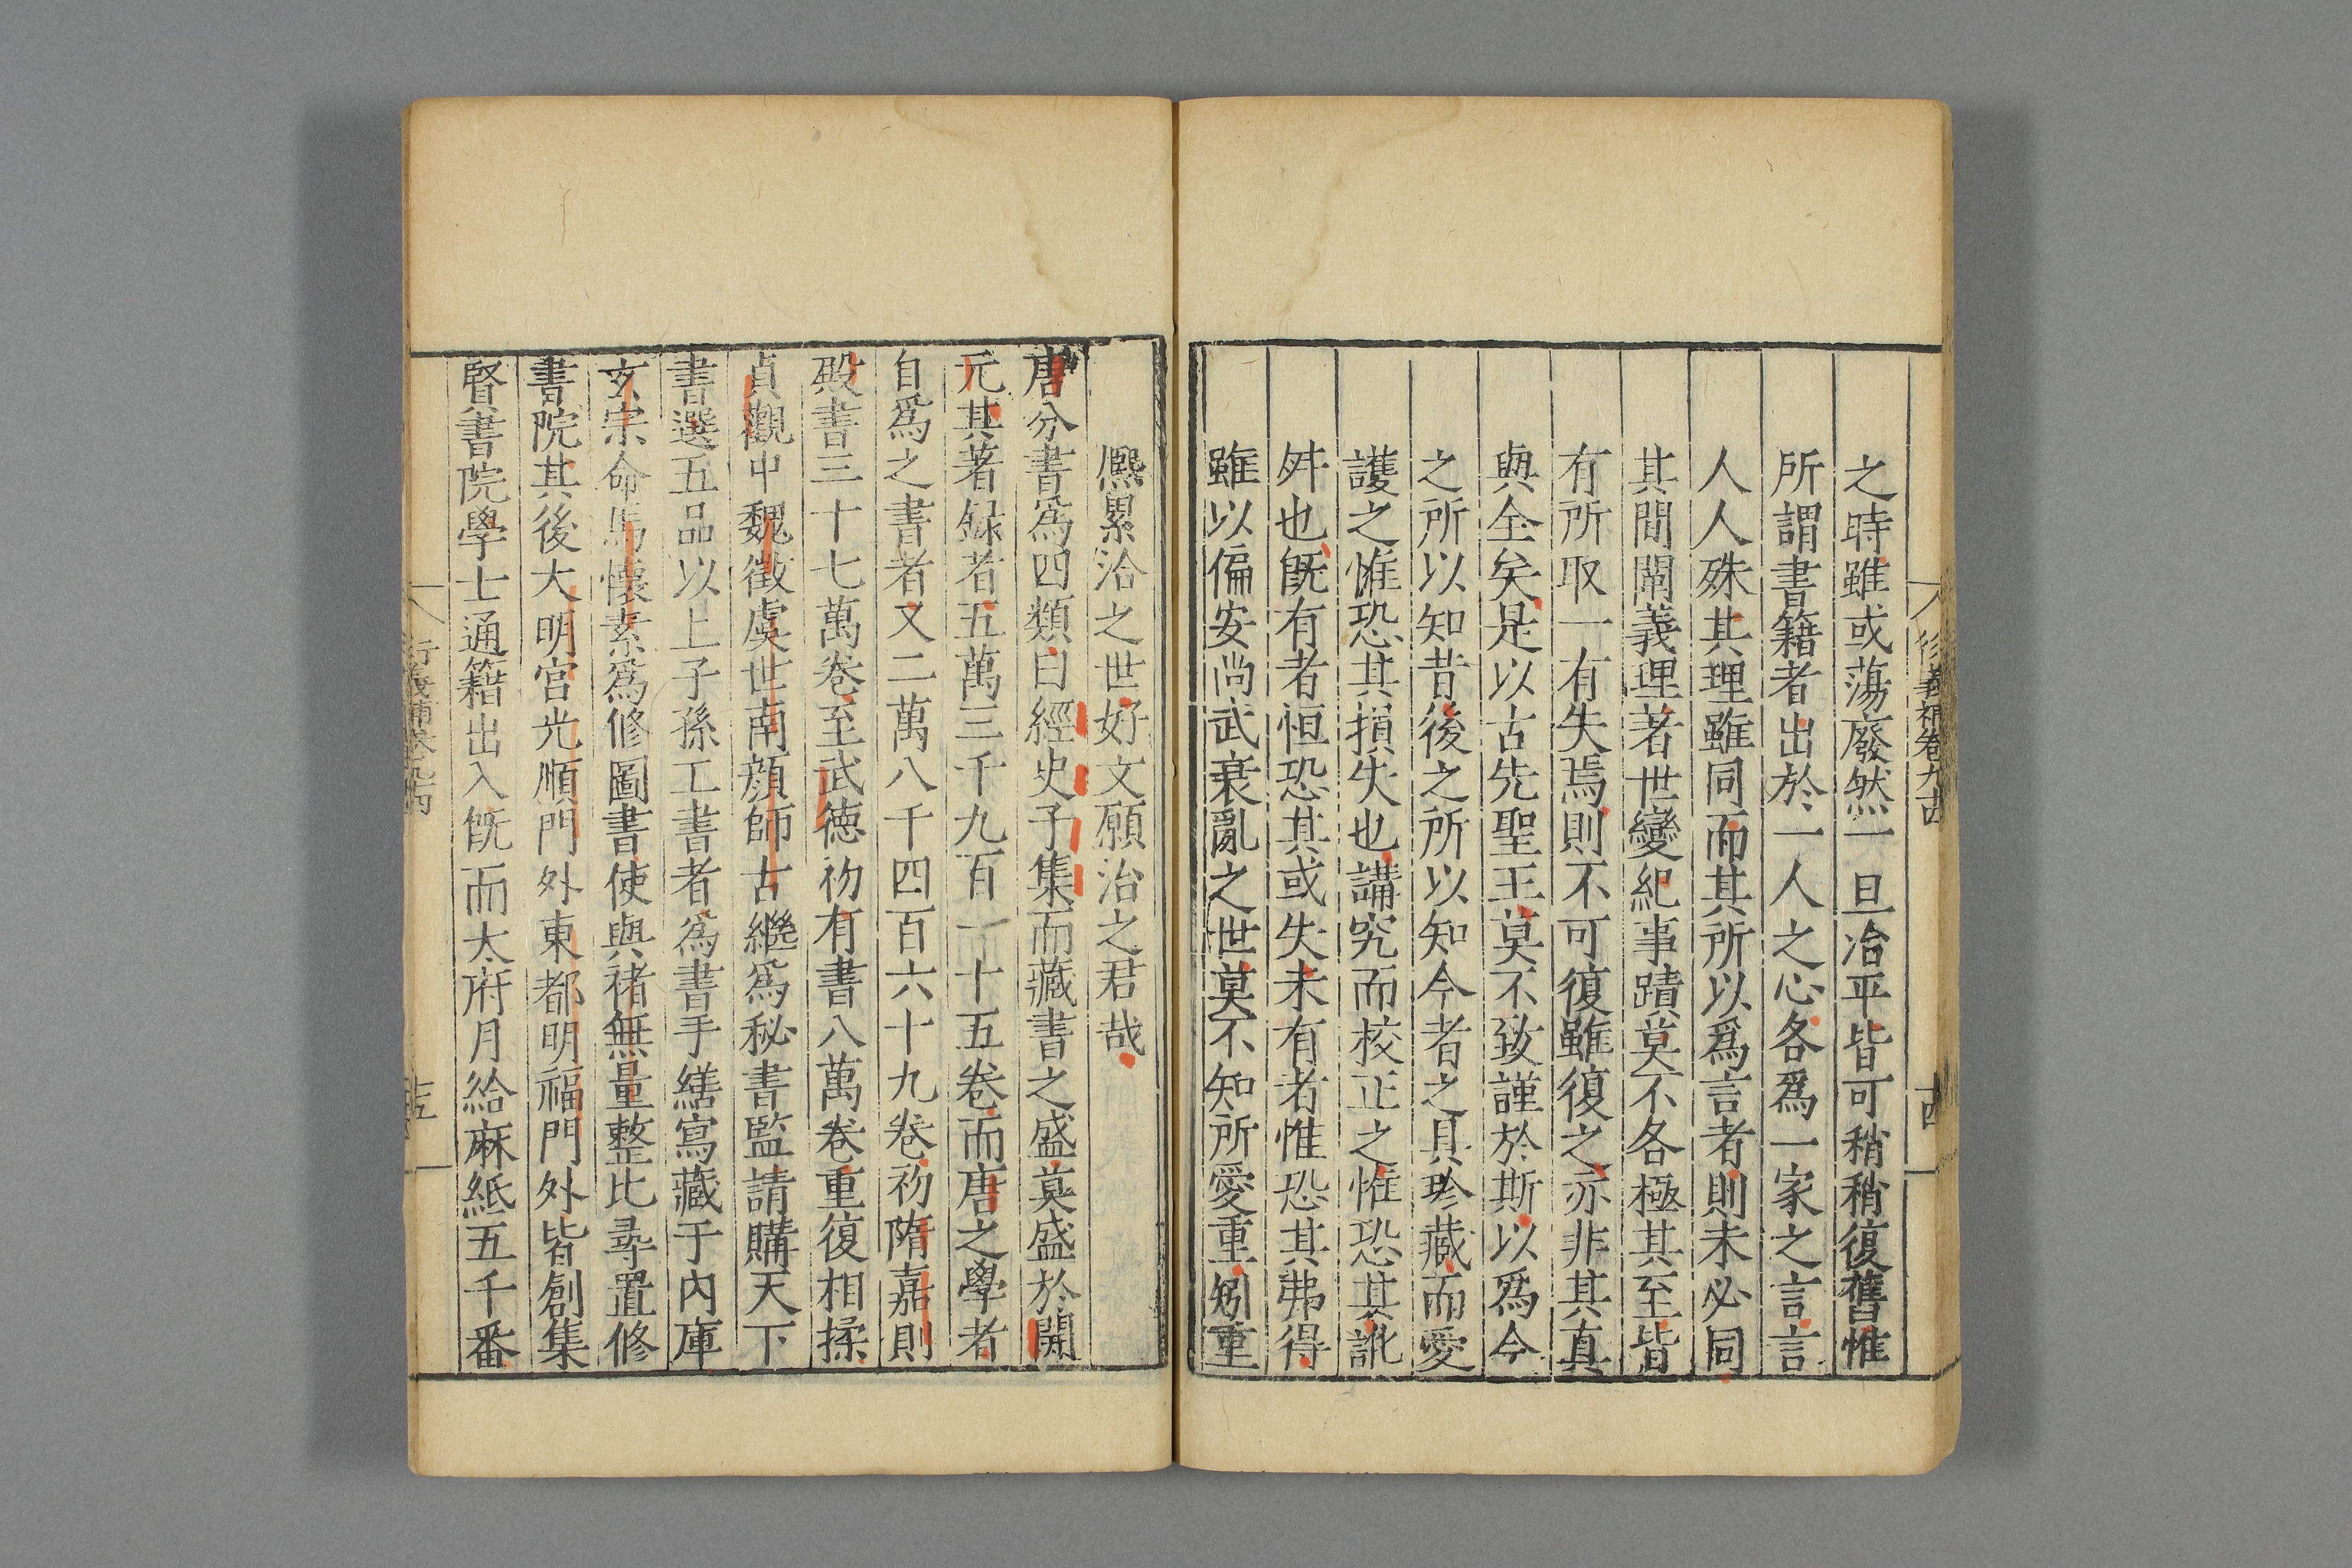 之時雖或蕩廢然一旦治平皆可稍稍復舊惟
所謂書籍者出於一人之心各爲一家之言言
人人殊其理雖同而其所以爲言者則未必同
其間闡義理著世變紀事蹟莫不各極其至皆
有所取一有失焉則不可復雖復之亦非其真
與全矣是以古先聖王莫不致謹於斯以爲今
之所以知昔後之所以知今者之具珍藏而愛
護之惟恐其損失也講究而校正之惟恐其訛
舛也旣有者恒恐其或失未有者惟恐其弗得
雖以偏安尚武衰亂之世莫不知所愛重矧重
熈累洽之世好文願治之君哉
唐分書爲四類曰經史子集而藏書之盛莫盛於開
元其著録者五萬三千九百一十五卷而唐之學者
自爲之書者又二萬八千四百六十九卷初隋嘉則
殿書三十七萬卷至武德初有書八萬卷重復相揉
貞觀中魏徵虞世南顔師古繼爲秘書監請購天下
書選五品以上子孫工書者爲書手繕寫藏于內庫
玄宗命馬懷素爲修圖書使與禇無量整比尋置修
書院其後大明宫光順門外東都明福門外皆創集
賢書院學士通籍出入旣而太府月給麻紙五千番